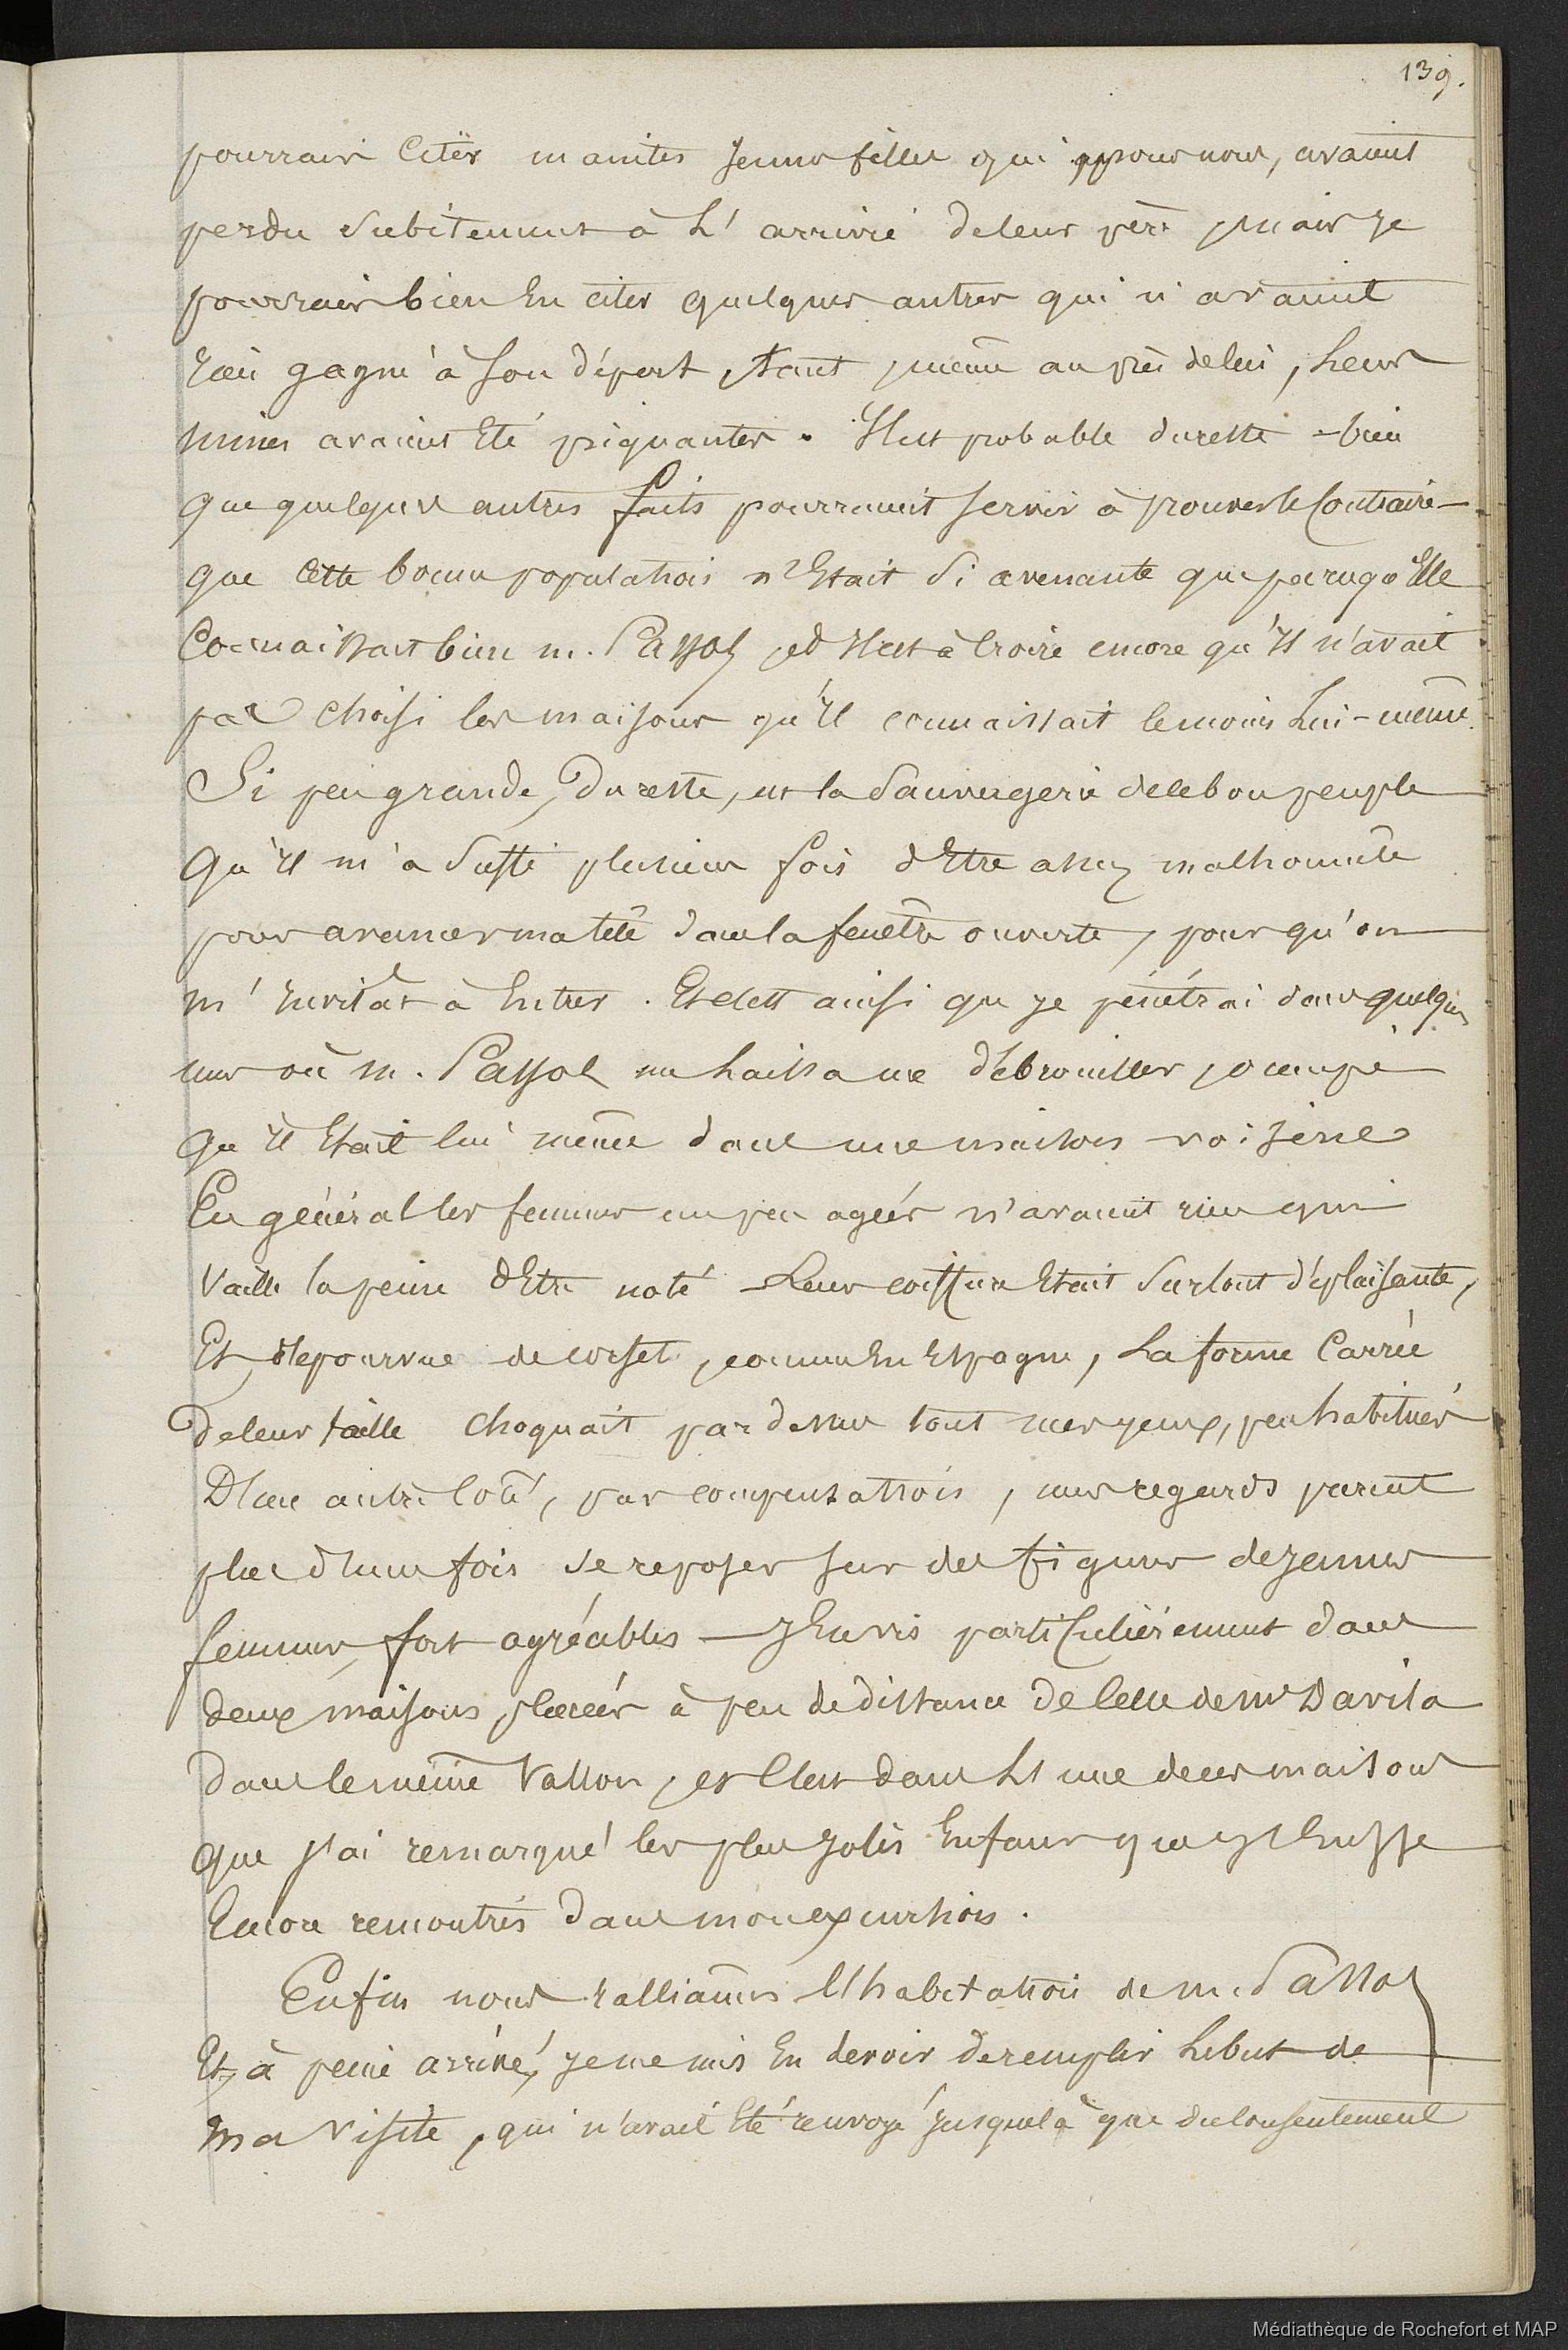 139.
pourrais citer maintes jeunes filles qui, pour nous, avaient
perdu subitement à l'arrivée de leur père, mais je
pourrais bien en citer quelques autres qui n'avaient
rien gagné à son départ, tant, même auprès de lui, leurs
mines avaient été piquantes. Il est probable du reste – bien
que quelques autres faits pourraient servir à prouver le contraire –
que cette bonne population n'était si avenante que parce qu'elle
connaissait bien m. Passol, et il est à croire encore qu'il n'avait
pas choisi les maisons qu'il connaissait le moins lui-même.
Si peu grande, du reste, est la sauvagerie de ce bon peuple
qu'il m'a suffi plusieurs fois d'être assez malhonnête
pour avancer ma tête dans la fenêtre ouverte, pour qu'on
m'invitât à entrer. Et c'est ainsi que je pénétrai dans quelques
unes où m. Passol me laissa me débrouiller, occupé
qu'il était lui même dans une maison voisine
En général les femmes un peu agées n'avaient rien qui
vaille la peine d'être noté – Leur coiffure était surtout déplaisante,
Et, dépourvue de corset, comme en Espagne, la forme carrée
de leur taille choquait par dessus tout mes yeux, peu habitués
D'un autre côté, par compensation, mes regards purent
plus d'une fois se reposer sur des figures de jeunes
femmes, fort agréables – J'en vis particulièrement dans
deux maisons, placées à peu de distance de celle de Mr Davila
dans le même vallon, et c'est dans l'une de ces maisons
que j'ai remarqué les plus jolis enfans que j'eusse
encore rencontrés dans mon excursion.
Enfin nous ralliames l'habitation de m. Passol
Et, à peine arrivé, je me mis en devoir de remplir le but de
ma visite, qui n'avait été renvoyé jusque là que du consentement
Médiathèque de Rochefort et MAP